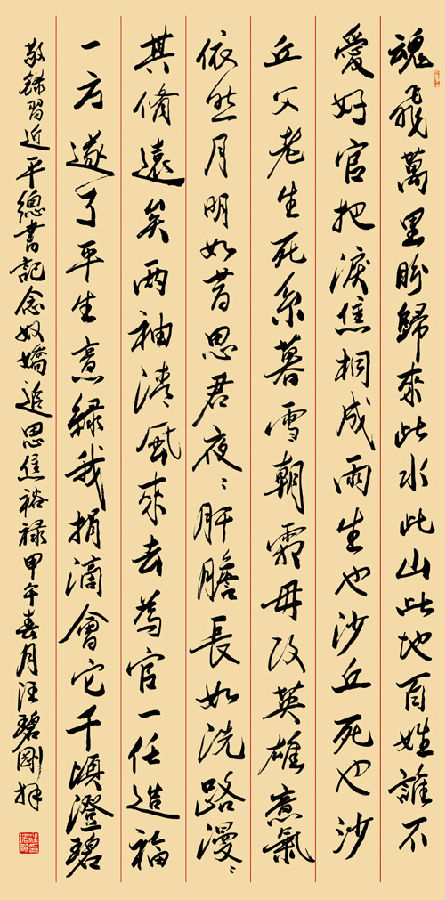 魂飛萬里盼歸來此水此山此地百姓誰不
愛好官把淚焦桐成雨生也沙丘死也沙
丘父老生死系暮雪朝霜毋改英雄意氣
依然月明如昔思君夜〻肝膽長如洗路漫〻
其脩遠矣兩袖清風來去為官一任造福
一方遂了平生意綠我涓滴會它千頃澄碧
敬錄習近平總書記念奴嬌追思焦裕祿甲午春月汪碧剛拜